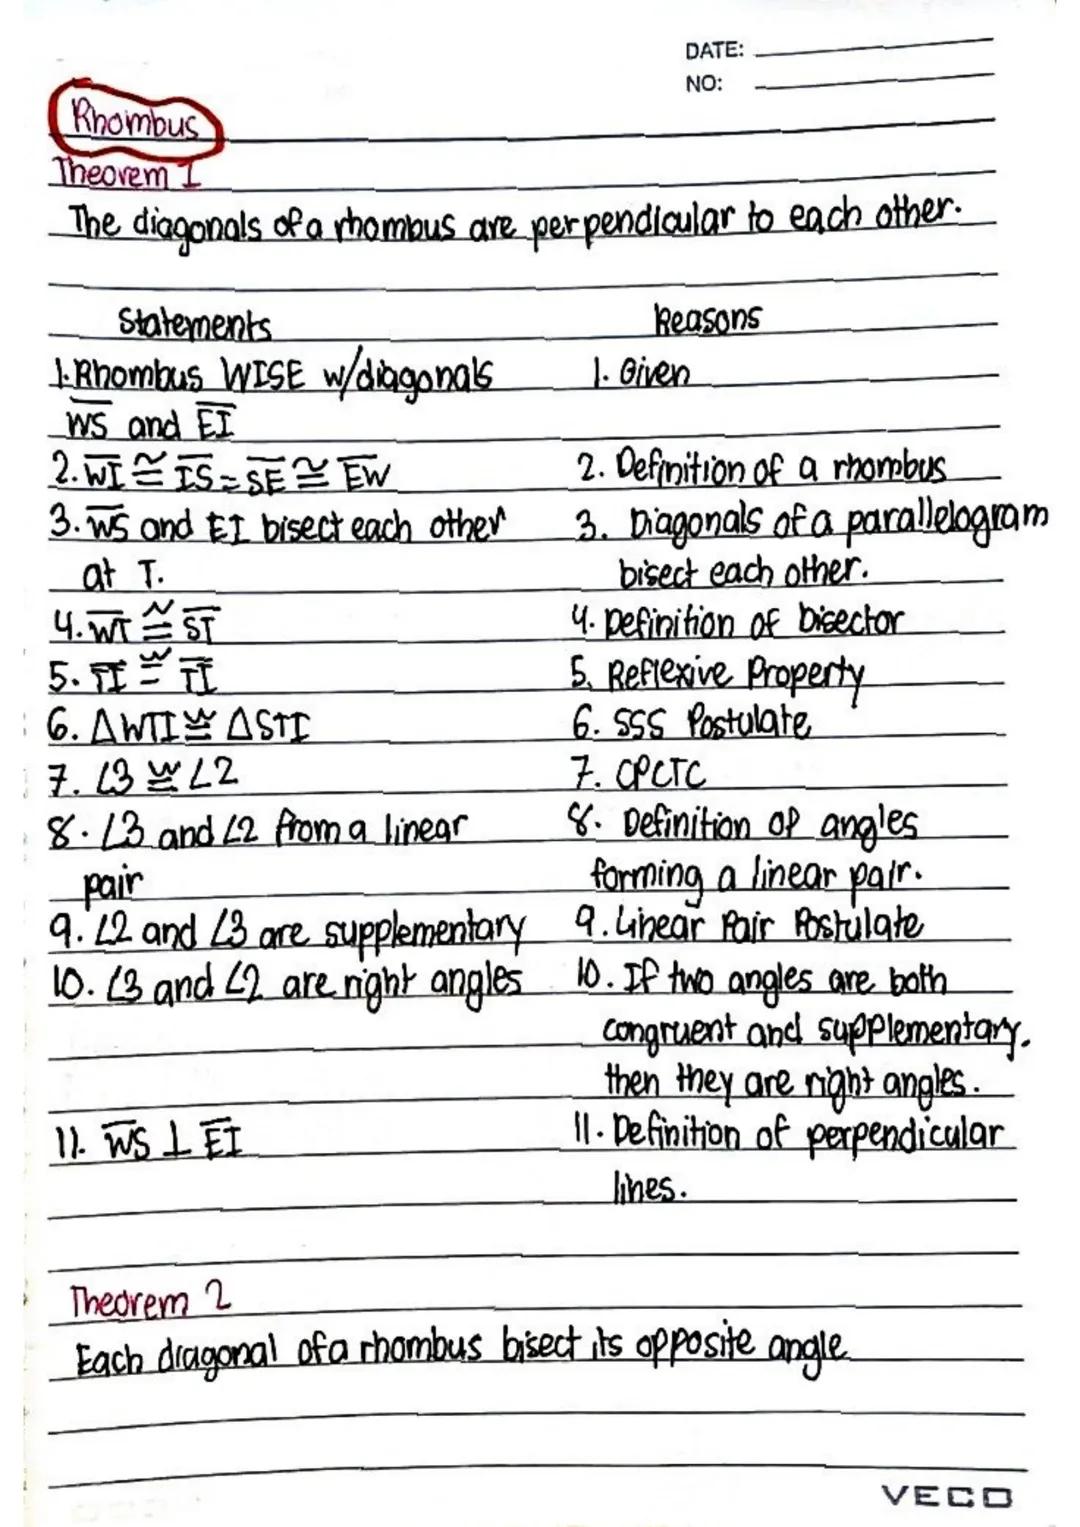 DATE:
NO:
Rhombus
Theorem 1
The diagonals of a rhombus are perpendicular to each other.
Statements Reasons
1. Rhombus WISE w/diagonals 1. Given
W̅S̅ and E̅I̅
2. W̅I̅ ≅ I̅S̅ = S̅E̅ ≅ E̅W̅ 2. Definition of a rhombus
3. W̅S̅ and E̅I̅ bisect each other 3. Diagonals of a parallelogram
at T. bisect each other.
4. W̅T̅ ≅ S̅T̅ 4. Definition of bisector
5. T̅I̅ ≅ T̅I̅ 5. Reflexive Property
6. △WTI ≅ △STI 6. SSS Postulate
7. ∠3 ≅ ∠2 7. CPCTC
8. ∠3 and ∠2 from a linear 8. Definition of angles
pair forming a linear pair.
9. ∠2 and ∠3 are supplementary 9. Linear Pair Postulate
10. ∠3 and ∠2 are right angles 10. If two angles are both
congruent and supplementary,
then they are right angles.
11. W̅S̅ ⊥ E̅I̅ 11. Definition of perpendicular
lines.
Theorem 2
Each diagonal of a rhombus bisect its opposite angle
VECO